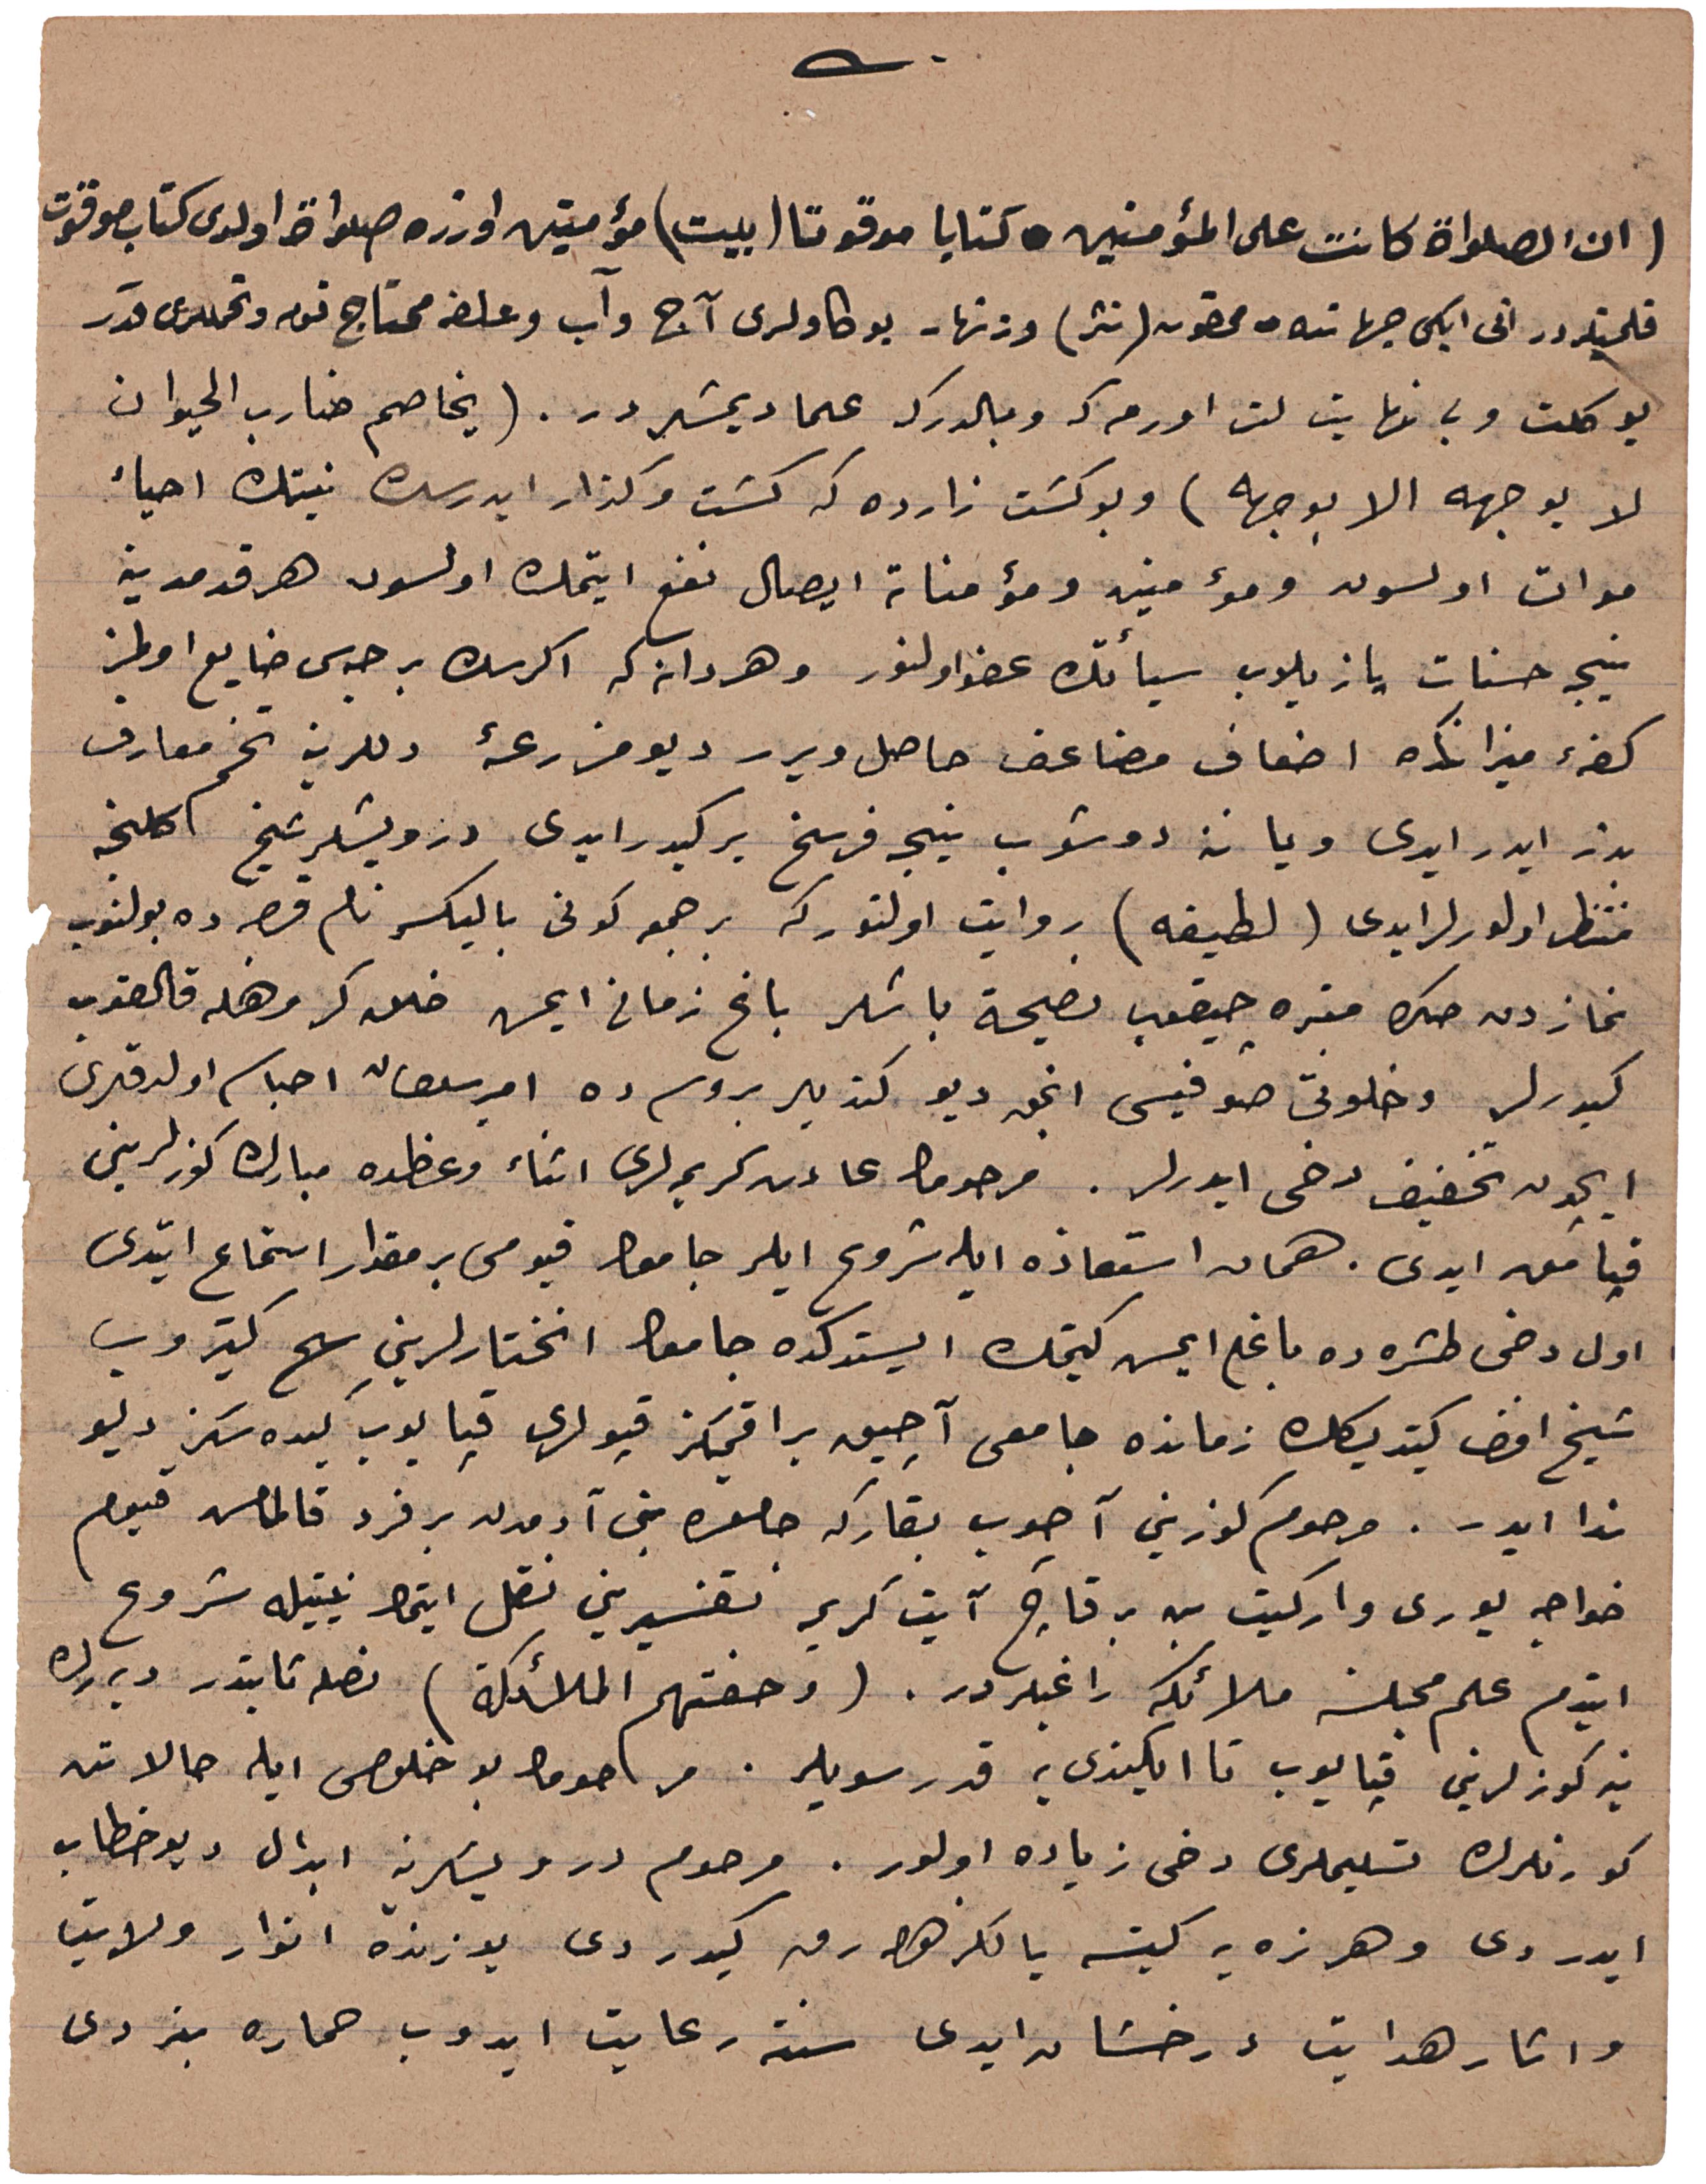 (ان الصلواة كانت على المؤمنين كتابا موقوتا (بيت) مؤمنين اوزره صلواة اولدى كتاب موقوت
قلميدر در انى ايكى جهانده محقون (نثر) وزنهار بو كاولرى آج وآب وعلفه محتاج قومه وتحمللرى قدر
يوكلت وبى نهايت لت اورمه كه وبالدركه علما ديمشلر در . (يخاصم ضارب الحيوان
لا بوجهه الا بوجهه) وبو كشت زارده كه كشت وكذار ايدرسك نيتك احياء
موات اولسون ومؤمنين ومؤمناته ايصال نفع ايتمك اولسون هر قدمدينه
نيجه حسنات يازيلوب سيأتك عفو اولنور وهر دانه كه اكرسك بر حبه سى ضايع اولمز
كفهء ميزانكده اضعاف مضاعف حاصل ويرر ديو مزرعهٔ دللرينه تخم معارف
بذر ايدر ايدى ويا نه دوشوب نيجه فرسخ ير كيدر ايدى درويشلر شيخ كلنجه
منتظر اولورلر ايدى (لطيفه) روايت اولنور كه بر جمعه كونى باليكسر نام قصبه ده بولنوب
نمازدن صكره منبره چيقوب نصيحة باشلر باغ زمانى ايمش خلق كروهله قالقوب
كيدرلر وخلوتى صوفيسى انجق ديو كندىلر بروسه ده امير سلطان احباسى اولدقلرى
ايچون تخفيف دخى ايدرلر . مرحومك عادت كريمه لرى اثناء وعظده مبارك كوزلرينى
قپامق ايدى . همان استعاذه ايله شروع ايلر جامعك قيومى بر مقدار استماع ايتدى
اول دخى طشره ده باغلى ايمش كيتمك ايستدكده جامعك انختارلرينى كتوروب
شيخ افندى كيتديككز زمانده جامعى آچيق براقمكز قپولرى قپايوب كيده سكز ديو
ندا ايدر . مرحوم كوزينى آچوب بقار كه جامعده بنى آدمدن بر فرد قالمامش قيوم
خواجه يورى وار كيت بن بر قاچ آيت كريمه تفسيرينى نقل ايتمك نيتيله شروع
ايتدم علم مجلسنه ملائكه راغبلردر . (وحفتهم الملائكة) نصله ثابتدر ديه رك
ينه كوزلرينى قپايوب تا ايكندى يه قدر سويلر . مرحومك بو خلوصى ايله حالاتن
كورنلرك تسليملرى دخى زياده اولور . مرحوم درويشلرينه ابدال ديو خطاب
ايدردى وهر نره يه كيتسه يالكز كيدردى يوزنده انوار ولايت
واثار هدايت درخشان ايدى سنته رعايت ايدوب حماره بنردى